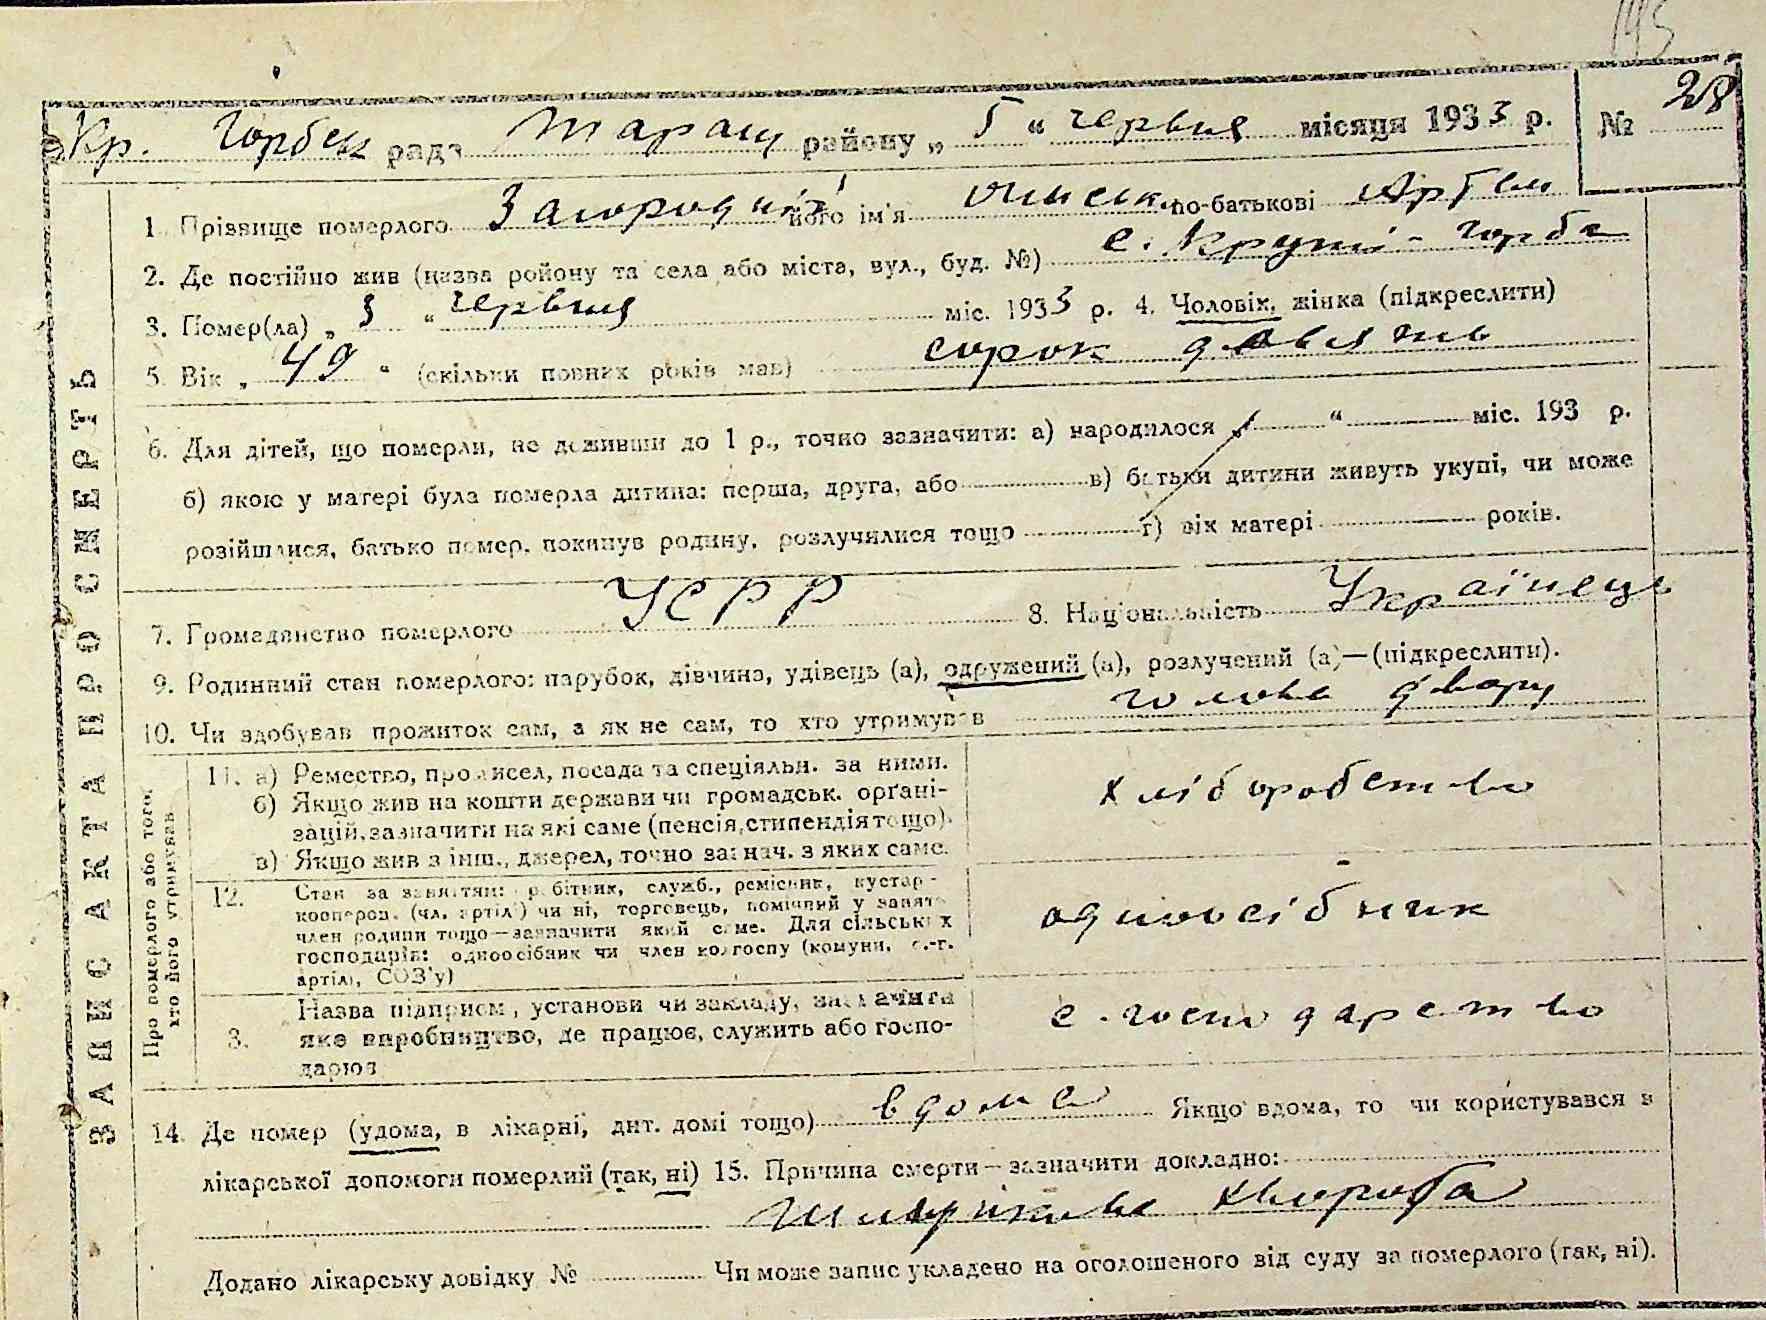 193
Кр. Горбск рада Таращ району „ 5 “ червня місяця 1933 р. № 28
ЗАПИС АКТА ПРО СМЕРТЬ
1. Прізвище померлого Загородній його ім'я по-батькові Артем
2. Де постійно жив (назва ройону та села або міста, вул., буд. №) с. Круті-Горби
3. Помер(ла) „ 3 “ червня міс. 1933 р. 4. Чоловік, жінка (підкреслити)
5. Вік „ 49 “ (скільки повних років мав) сорок девять
6. Для дітей, що померли, не доживши до 1 р., точно зазначити: а) народилося „ “ міс. 193 р.
б) якою у матері була померла дитина: перша, друга, або в) батьки дитини живуть укупі, чи може
розійшлися, батько помер, покинув родину, розлучилися тощо г) вік матері років.
7. Громадянство померлого УСРР 8. Національність Українець
9. Родинний стан померлого: парубок, дівчина, удівець (а), одружений (а), розлучений (а)—(підкреслити).
10. Чи здобував прожиток сам, а як не сам, то хто утримував голова двору
Про померлого або того, хто його утримував
11. а) Ремество, промисел, посада та спеціяльн. за ними.
б) Якщо жив на кошти держави чи громадськ. орґані-
зацій, зазначити на які саме (пенсія, стипендія тощо).
в) Якщо жив з інш., джерел, точно зазнач. з яких саме.
хліборобство
12. Стан за заняттям: робітник, служб., ремісник, кустар -
кооперов. (чл. артіл.) чи ні, торговець, помічний у занят.
член родини тощо—зазначити який саме. Для сільських
господарів: одноосібник чи член колгоспу (комуни, с.-г.
артілі, СОЗ'у)
одноосібник
3. Назва підприєм., установи чи закладу, зазначити
яке виробництво, де працює, служить або госпо-
дарює
с. господарство
14. Де помер (удома, в лікарні, дит. домі тощо) вдома Якщо вдома, то чи користувався з
лікарської допомоги померлий (так, ні) 15. Причина смерти—зазначити докладно:
хвороба
Додано лікарську довідку № Чи може запис укладено на оголошеного від суду за померлого (так, ні).